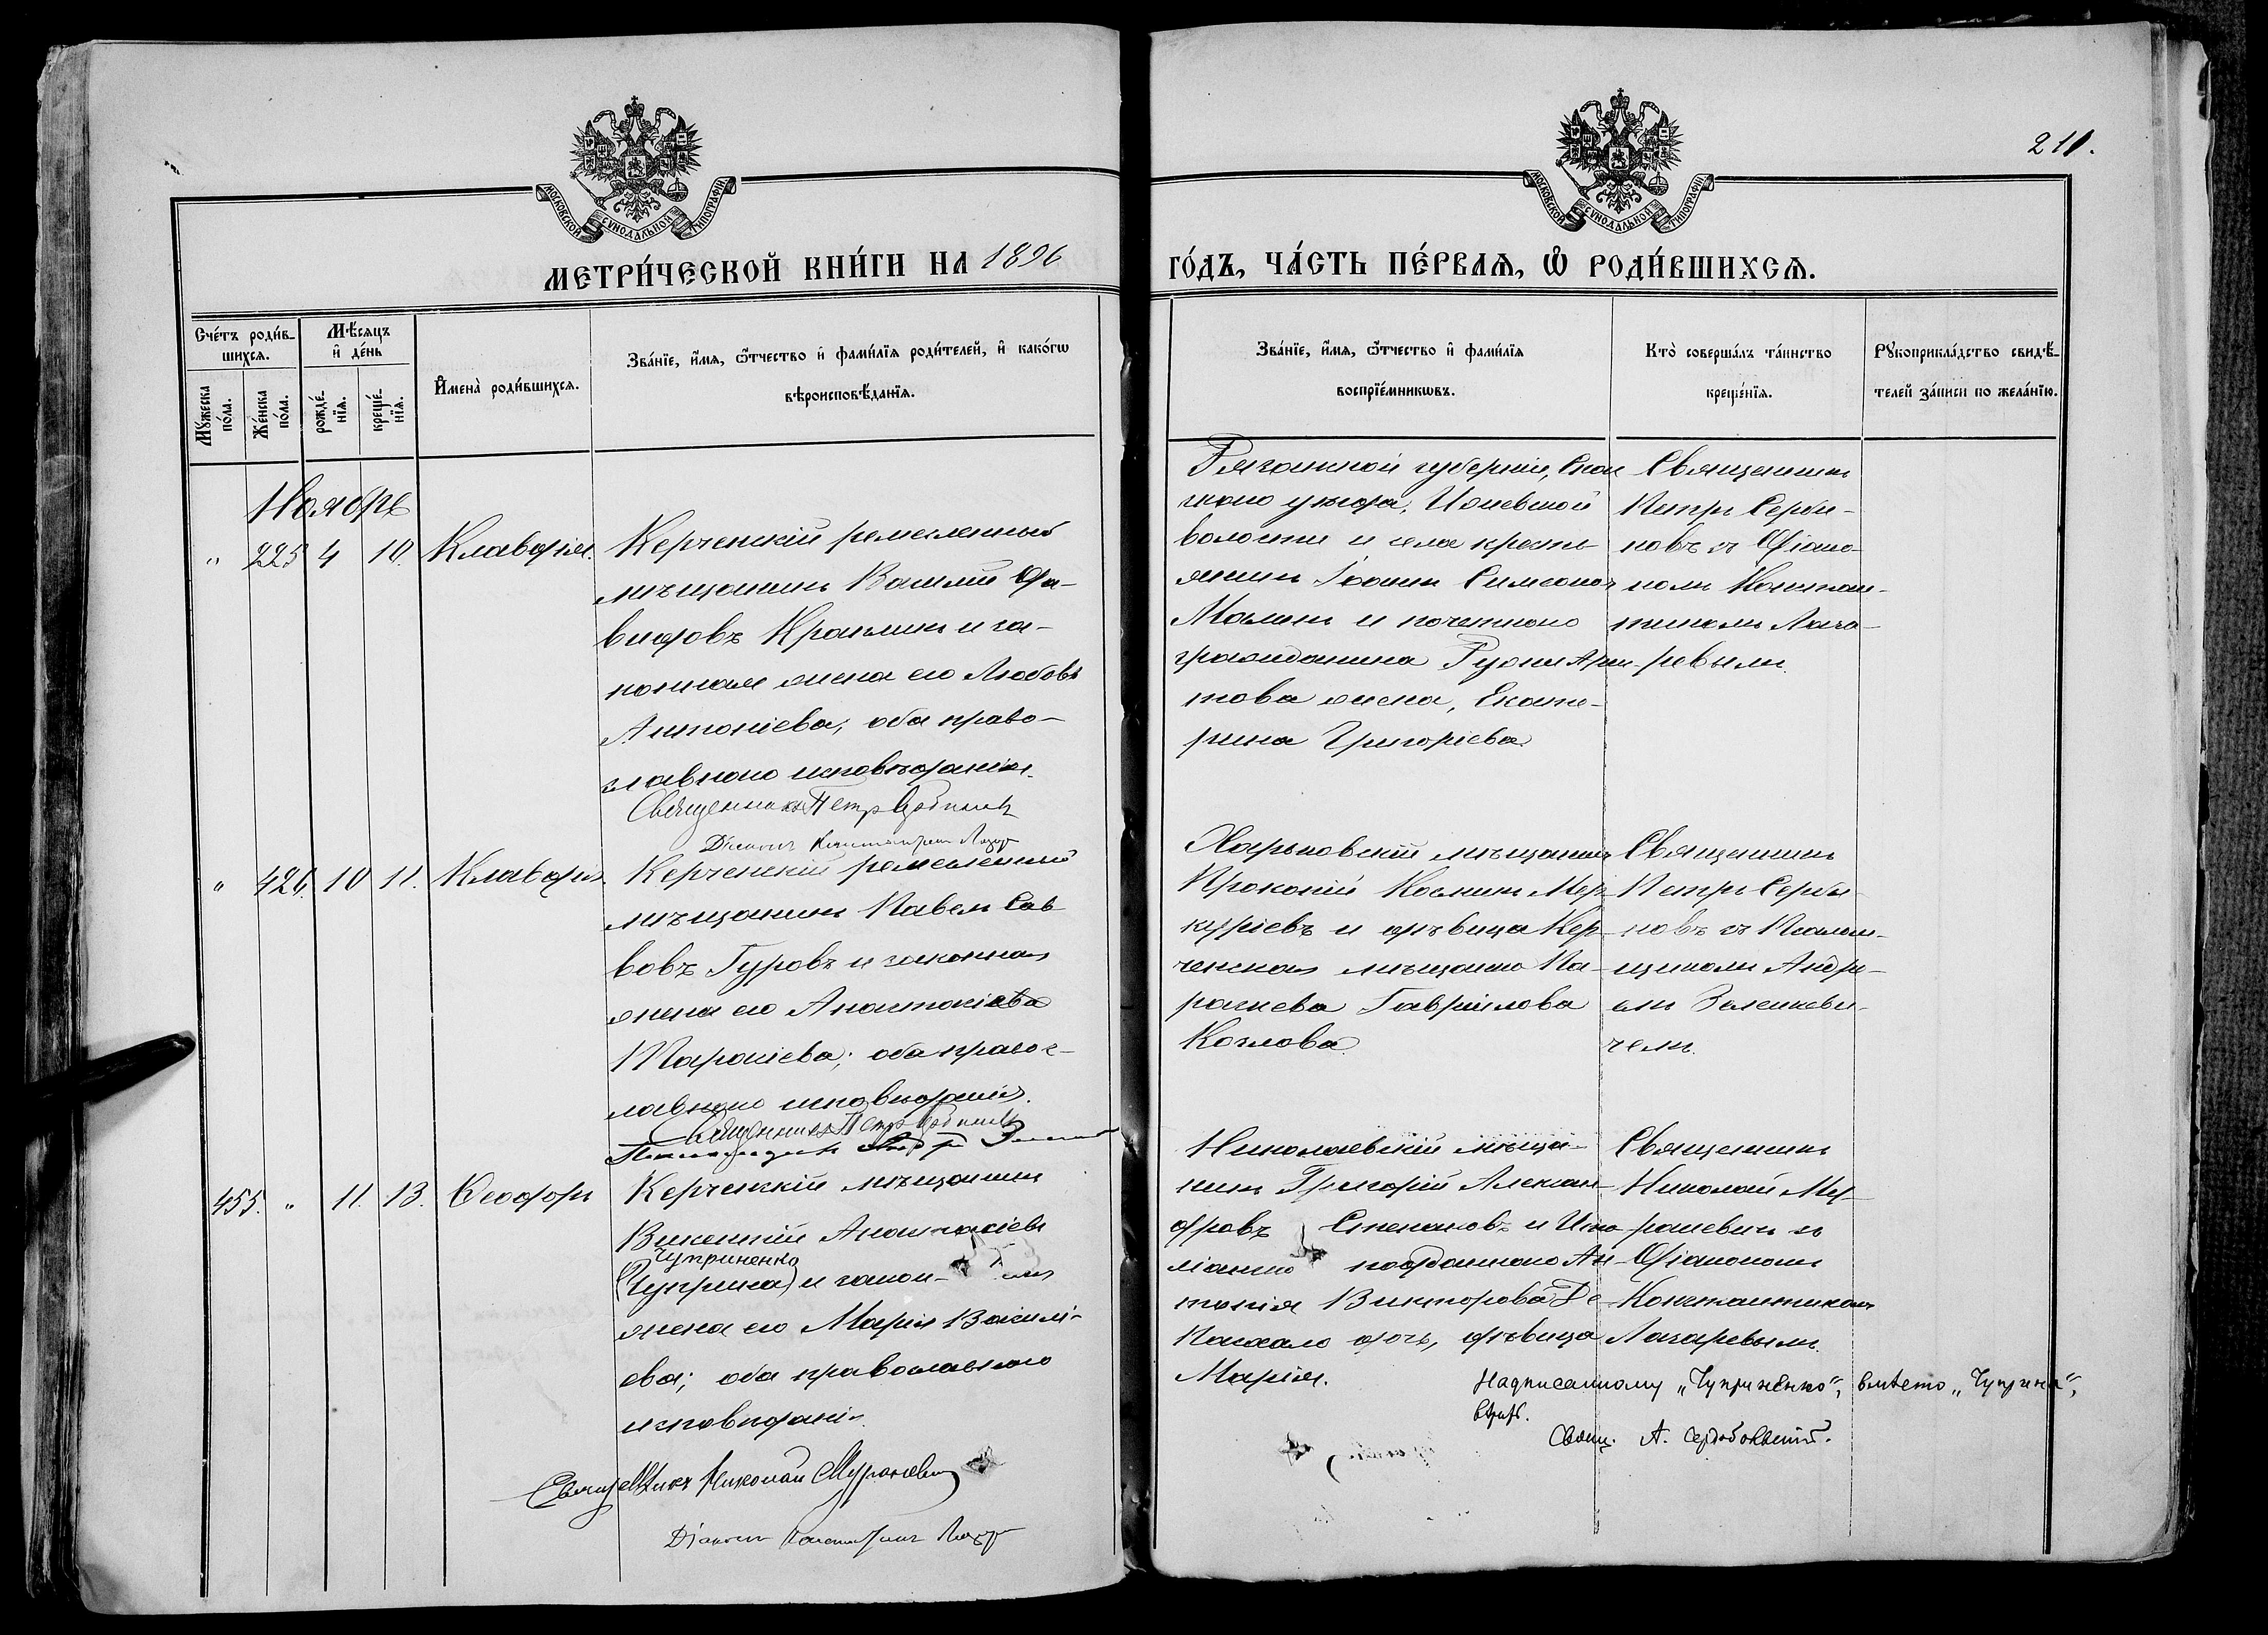 210.
МОСКОВСКОЙ СѴНОДАЛЬНОЙ ТИПОГРАФІИ
МОСКОВСКОЙ СѴНОДАЛЬНОЙ ТИПОГРАФІИ
МЕТРИ́ЧЕСКОЙ КНИ́ГИ НА 1896
ГО́ДЪ, ЧА́СТЬ ПЕ́РВАѦ, Ѡ РОДИ́ВШИХСѦ.
Сче́тъ роди́в-
шихся.
Мꙋжеска
по́ла.
Же́нска
по́ла.
Мѣ́сяцъ
и де́нь
рожде́-
нїя.
креще́-
нїя.
Имена̀ роди́вшихся.
Зва́нїе, и́мя, ѻ҆́тчество и фами́лїя роди́телей, и како́гѡ
вѣроисповѣ́данїя.
Зва́нїе, и́мя, ѻ҆́тчество и фами́лїя
воспрїе́мникѡвъ.
Кто̀ соверша́лъ та́инство
креще́нїя.
Рꙋкоприкла́дство свидѣ́-
телей за́писи по жела́нїю.
Ноябрь
" 225 4 10. Клавдія.
Керченскій ремесленный
мѣщанинъ Василій Да-
видовъ Краплинъ и за-
конная жена его Любовь
Антоніева; оба право-
славного исповѣданія.
Священникъ Петръ Сербиновъ
Діаконъ Константинъ Лазар
Рязанской губерніи, Скоп
скаго уѣзда,
волости и села крестья
янинъ Іоаннъ Симеонов
Малинъ и почетного
гражданина
това жена, Екате-
рина Григоріева
Священникъ
Петръ Серби-
новъ съ Діако-
номъ Констан-
тиномъ Лаза-
ревымъ.
" 426. 10 11. Клавдія.
Керченскій ремесленный
мѣщанинъ Павелъ Сав
вовъ Гуровъ и законная
жена его Анастасіева
оба правос-
лавного исповѣданія.
Священникъ Петръ Сербиновъ
Харьковскій мѣщанинъ
Прокопій Косминъ Мер-
куріевъ и дѣвица Кер-
ченская мѣщанка Па-
раскева Гавріилова
Козлова.
Священникъ
Петръ Серби-
новъ съ Псалом-
щикомъ Андре-
емъ Зеленкеви-
чемъ.
455. " 11. 13. Ѳеодоръ
Керченскій мѣщанинъ
Викентій Анастасіевъ
Чуприненко
(Чуприна) и закон-
жена его Марія Василі-
ева; оба православного
исповѣданія.
Священникъ Николай Мурашевичъ
Діаконъ Константинъ Лазар
Николаевскій мѣща-
нинъ Григорій Алексан-
дровъ Степановъ и Ита-
ліанско подданного Ан-
тонія Викторова Де-
Паскало дочь, дѣвица
Марія.
Священникъ
Николай Му-
рашевичъ съ
Діакономъ
Константиномъ
Лазаревымъ.
Надписанному „Чуприненко", вмѣсто „Чуприна",
вѣрить.
Свящ. А. Сердобольскій.